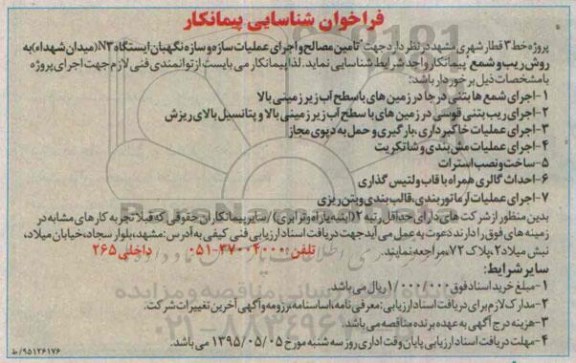 فراخوان شناسایی پیمانکار
پروژه خط ۳ قطار شهری مشهد در نظر دارد جهت "تامین مصالح و اجرای عملیات سازه و سازه نگهبان ایستگاه N3 (میدان شهداء) به
روش ریب و شمع" پیمانکار واجد شرایط شناسایی نماید. لذا پیمانکار می بایست از توانمندی فنی لازم جهت اجرای پروژه
با مشخصات ذیل برخوردار باشد:
۱-اجرای شمع ها بتنی درجا در زمین های با سطح آب زیرزمینی بالا
۲-اجرای ریب بتنی قوسی در زمین های با سطح آب زیرزمینی بالا و پتانسیل بالای ریزش
۳-اجرای عملیات خاکبرداری، بارگیری و حمل به دپوی مجاز
۴-اجرای عملیات مش بندی و شاتکریت
۵-ساخت و نصب استرات
۶-احداث گالری همراه با قاب و لتیس گذاری
۷-اجرای عملیات آرماتوربندی، قالب بندی و بتن ریزی
بدین منظور از شرکت های دارای حداقل رتبه ۲ (ابنیه یا راه و ترابری) / سایر پیمانکاران حقوقی که قبلا تجربه کارهای مشابه در
زمینه های فوق را دارند دعوت به عمل می آید جهت دریافت اسناد ارزیابی فنی کیفی به آدرس: مشهد، بلوار سجاد، خیابان میلاد،
نبش میلاد ۲، پلاک ۷۲، مراجعه نمایند. تلفن: ۳۷۰۰۴۰۰۰-۰۵۱ داخلی ۲۶۵
سایر شرایط:
۱-مبلغ خرید اسناد فوق ۱/۰۰۰/۰۰۰ ریال می باشد.
۲-مدارک لازم برای دریافت اسناد ارزیابی: معرفی نامه، اساسنامه مرزومه و آگهی آخرین تغییرات شرکت.
۳-هزینه درج آگهی به عهده برنده مناقصه می باشد.
۴-مهلت دریافت اسناد ارزیابی پایان وقت اداری روز سه شنبه مورخ ۱۳۹۵/۰۵/۰۵ می باشد.
۹۵۱۲۶۱۷۶/ط